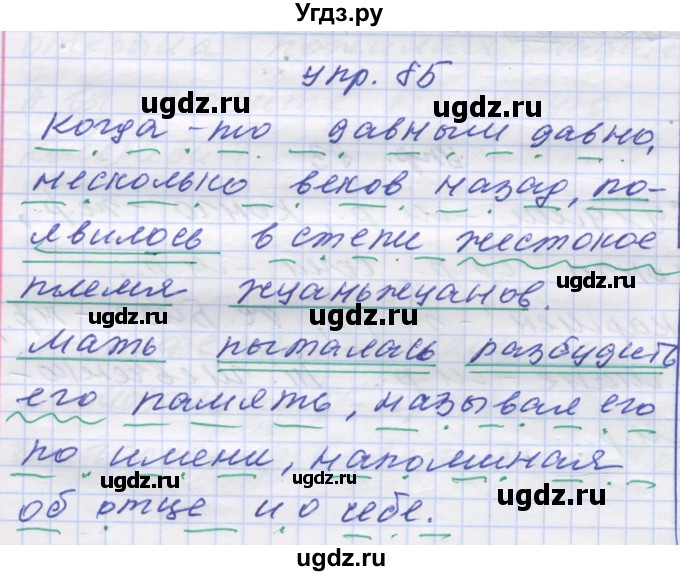 Угдз.ру
упр. 85
Когда-то давным давно,
несколько веков назад, по-
явилось в степи жестокое
племя жуаньжуанов.
Мать пыталась разбудить
его память, называя его
по имени, напоминая
об отце и о себе.
ugdz.ru
ugdz.ru
ugdz.ru
ugdz.ru
ugdz.ru
ugdz.ru
ugdz.ru
ugdz.ru
ugdz.ru
ugdz.ru
ugdz.ru